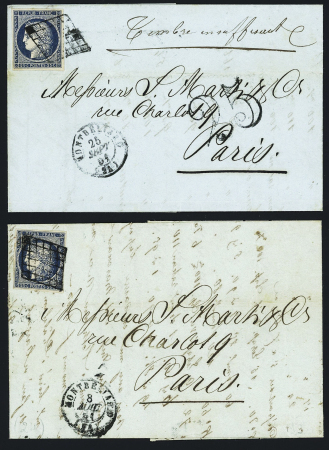 REPUB. FRANC.
Timbre insuffisant
Messieurs S. Martin & Co
rue Charlot 9
Paris.
25
MONTBELIARD
25
SEPT
51
(24)
REPUB. FRANC.
Messieurs S. Martin & Co
rue Charlot 9
Paris
MONTBELIARD
8
51
(24)